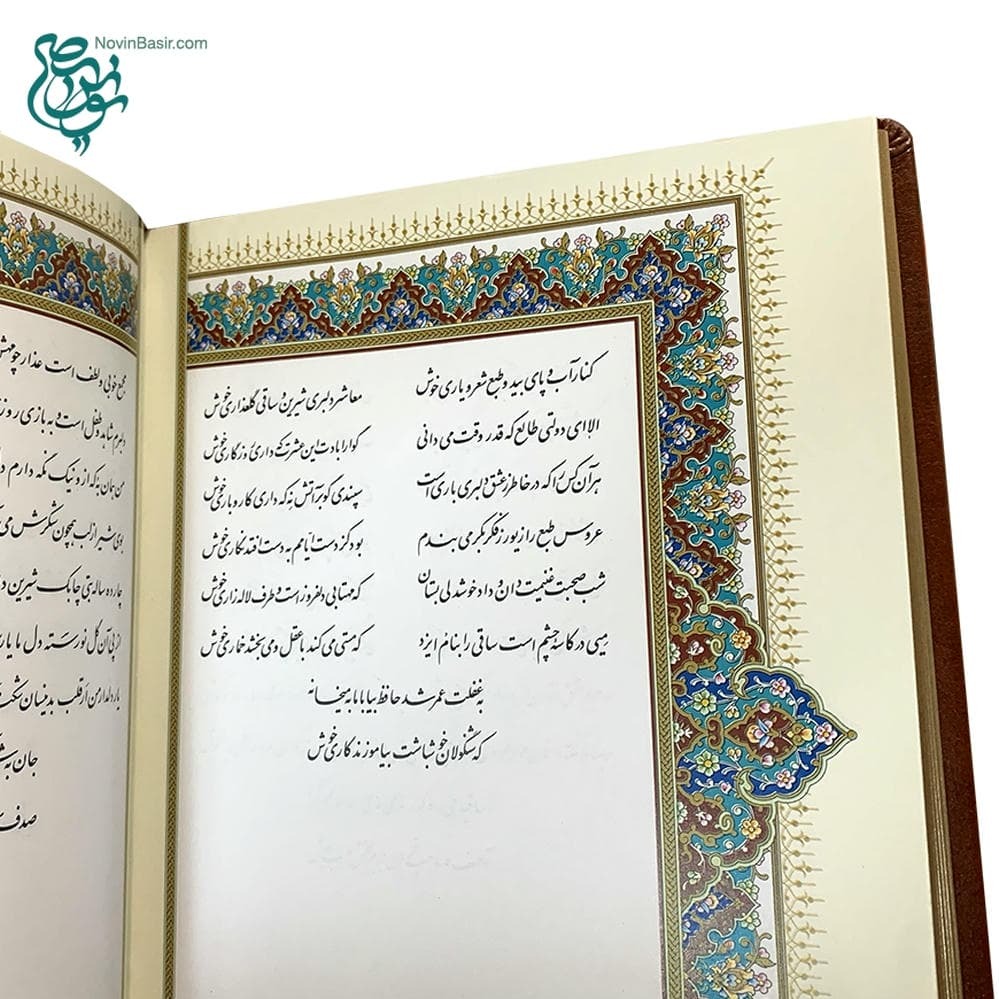 NovinBasir.com
کنار آب و پای بید و طبع شعر و یاری خوش معاشر دلبری شیرین و ساقی گلعذاری خوش
الا ای دولتی طالع که قدر وقت می دانی گوارا بادت این عشرت که داری روزگاری خوش
هر آن کس را که در خاطر ز عشق دلبری باری است سپندی گو بر آتش نه که داری کار و باری خوش
عروس طبع را زیور ز فکر بکر می بندم بود کز دست ایامم به دست افتد نگاری خوش
شب صحبت غنیمت دان و داد خوشدلی بستان که مهتابی دلفروز است و طرف لاله زاری خوش
میی در کاسه چشم است ساقی را بنام ایزد که مستی می کند با عقل و می بخشد خماری خوش
به غفلت عمر شد حافظ بیا با ما به میخانه
که شنگولان خوش باشت بیاموزند کاری خوش
مجمع خوبی و لطف است عذار چو مهش
دلبرم شاهد و طفل است و به بازی
من همان به که از او نیک نگه دارم
بوی شیر از لب همچون شکرش می
چارده ساله بتی چابک شیرین
از پی آن گل نورسته دل ما
یار دلدار من ار قلب بدینسان
جان به
صدف